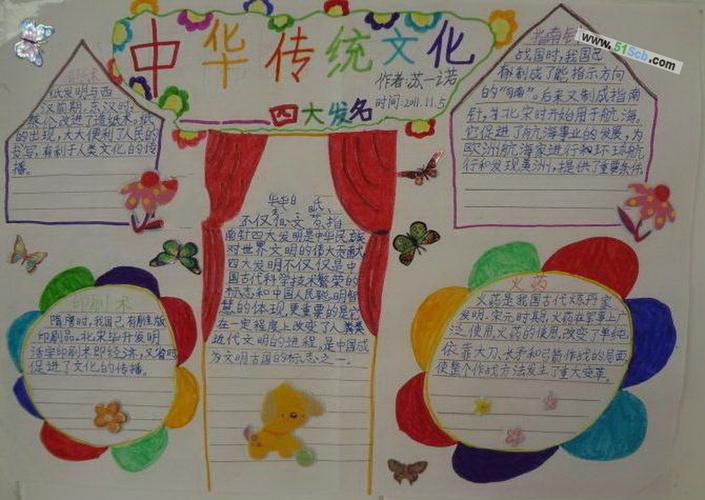 中华传统文化
作者:苏一诺
时间:2011.11.5
四大发名
www.51Scb.com
造纸术
纸发明与西
汉前期,东汉时,
蔡伦改进了造纸术。纸
的出现,大大便利了人民的
书写,有利于人类文化的传
播。
指南针
战国时,我国已
有制成了能指示方向
的"司南"。后来又制成指南
针,并北宋时开始用于航海。
它促进了航海事业的发展,为
欧洲航海家进行和环球航
行和发现美洲,提供了重要条件
不仅
指
南针四大发明是中华民族
对世界文明的伟大贡献
四大发明不仅仅是中
国古代科学技术繁荣的
标志和中国人民聪明智
慧的体现,更重要的是它
在一定程度上改变了人类
近代文明的进程,是中国成
为文明古国的标志之一。
印刷术
隋唐时,我国已有雕版
印刷品。北宋毕升发明
活字印刷术即经济,又省时
促进了文化的传播。
火药
火药是我国古代炼丹家
发明。宋元时期,火药在军事上广
泛使用。火药的使用,改变了单纯
依靠大刀、长矛和弓箭作战的局面
使整个作战方法发生了重大变革。